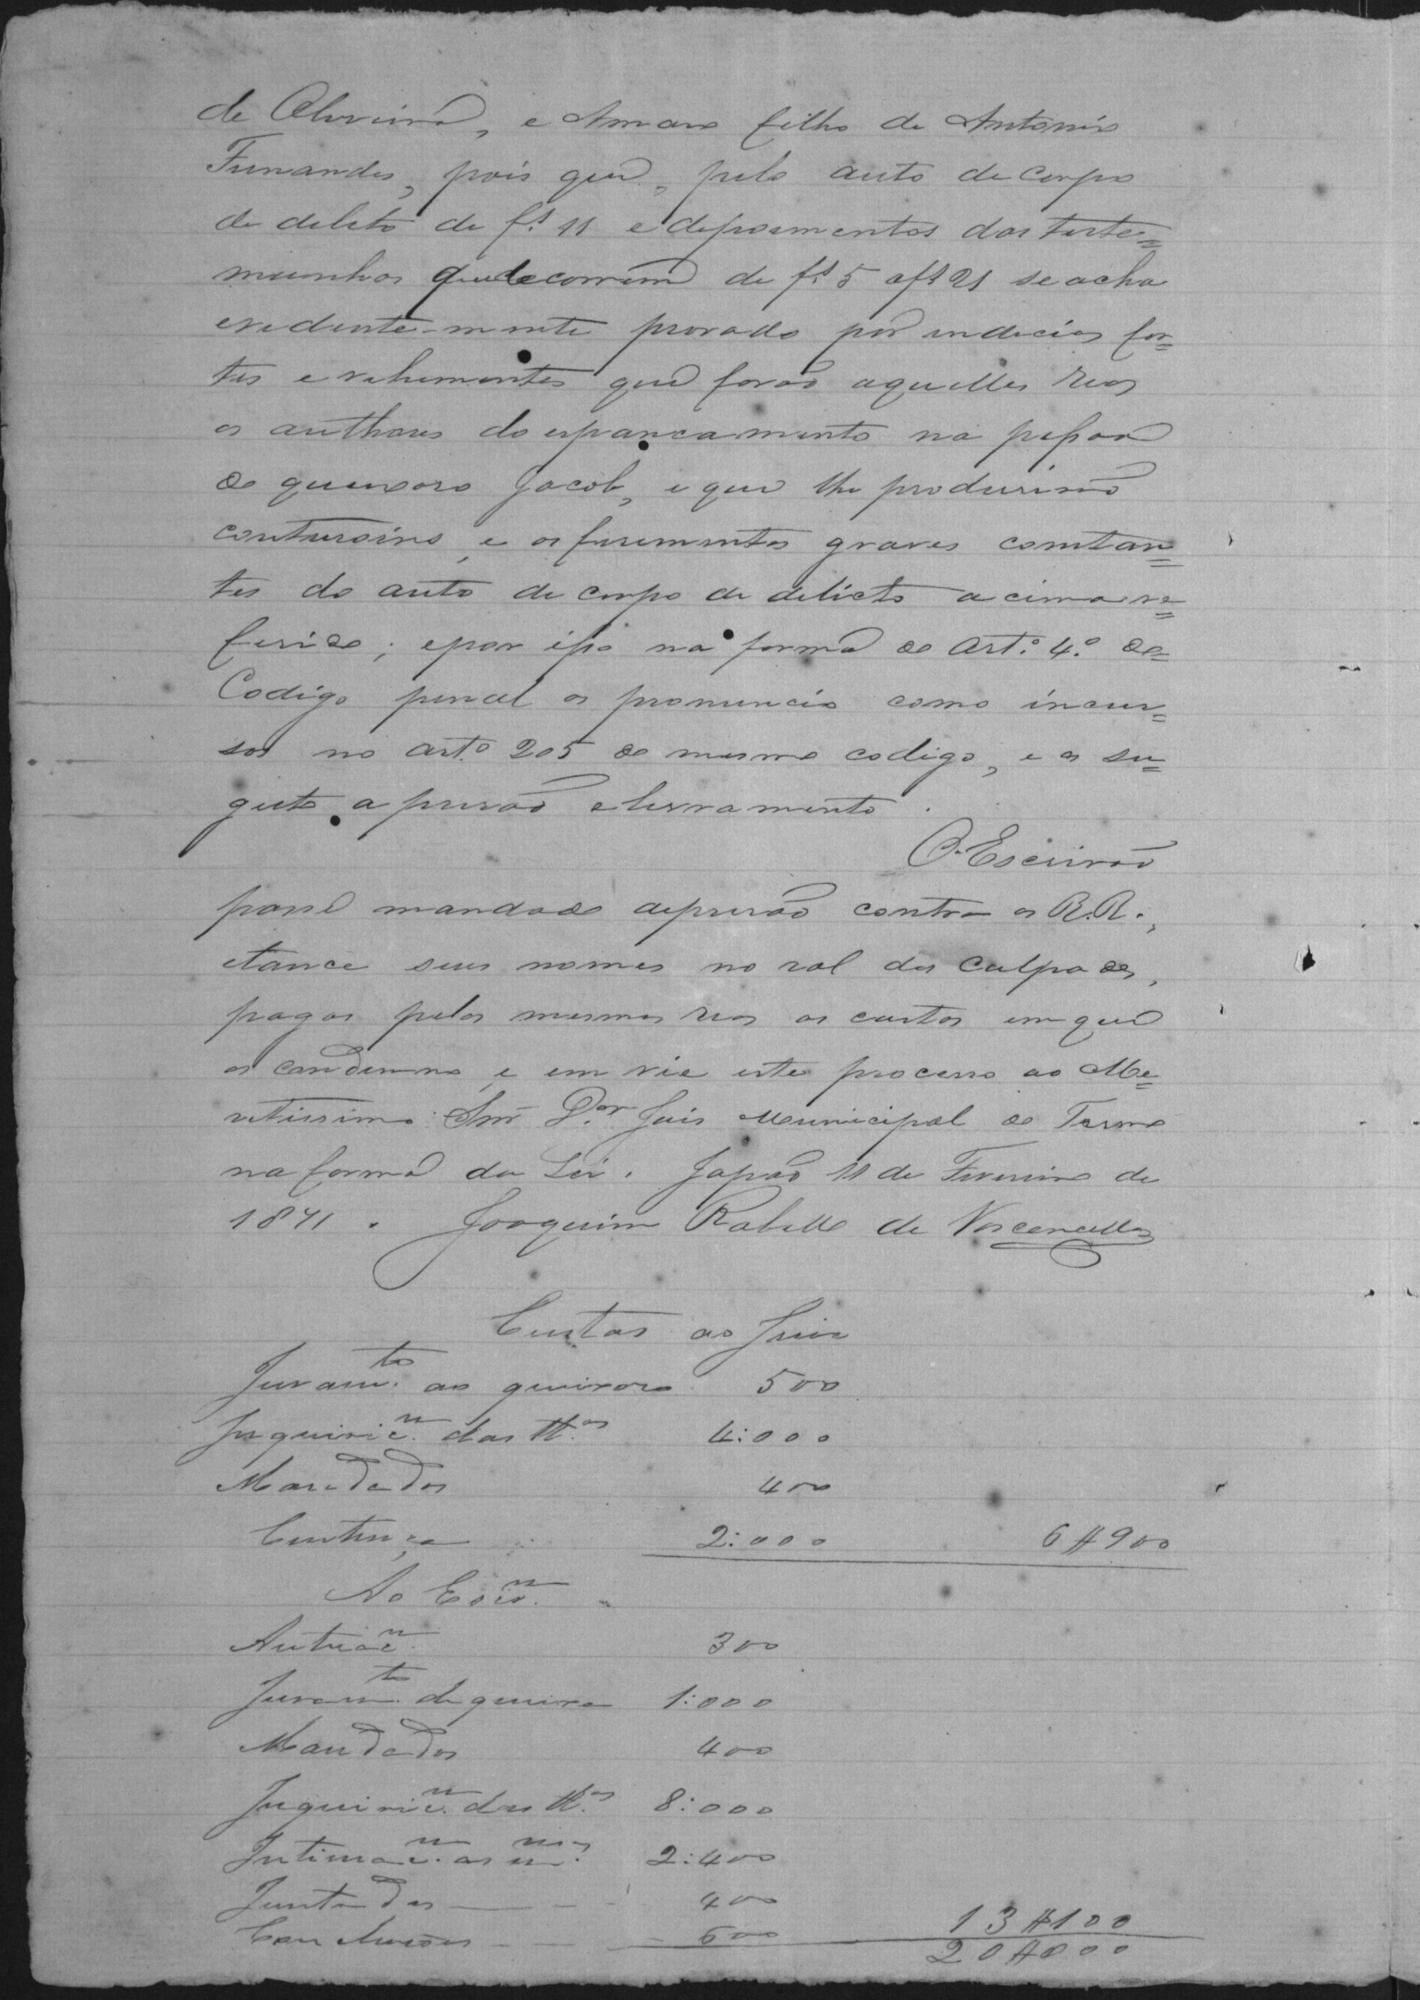 de Oliveira, e Amaro filho de Antonio
Fernandes, pois que, pelo auto de corpo
de delicto de f.s 11 e depoimentos das teste=
munhas que decorrem de f.s 5 a f.s 21 se acha
evedente-mente provado por indecios for=
tes e vehementes que forão aquelles reos
os authores do espancamento na pessoa
do queixoso Jacob, e que lhe produsirão
contusoins, e os ferimentos graves constan=
tes do auto de corpo de delicto acima re=
ferido; e por isso na forma do Art.º 4.º do=
Codigo penal os pronuncio como incur=
sos no art.º 205 do mesmo codigo, e os su=
geito a prisão e livramento.
O Escrivão
passe mandado de prisão contra os R.R.,
e lance seus nomes no rol dos culpados,
pagas pelos mesmos reos as custas em que
os condemno, e em vie este processo ao Me=
retissimo Snr D.or Juis Municipal do Termo
na forma da Lei. Japão 11 de Fevereiro de
1871. Joaquim Rabello de Vasconcellos
Custas ao Juiz
Juram.to ao queixoso 500
Inquiriç.m das tt.as 4:000
Mandados 400
Centença 2:000 6#900
Ao Escr.m
Autuaç.m 300
Juram.to de queixa 1:000
Mandados 400
Inquiriç.m das tt.as 8:000
Intimaç.m as m.mas 2:400
Juntadas 400
Conclusões 600 13#100
20#000